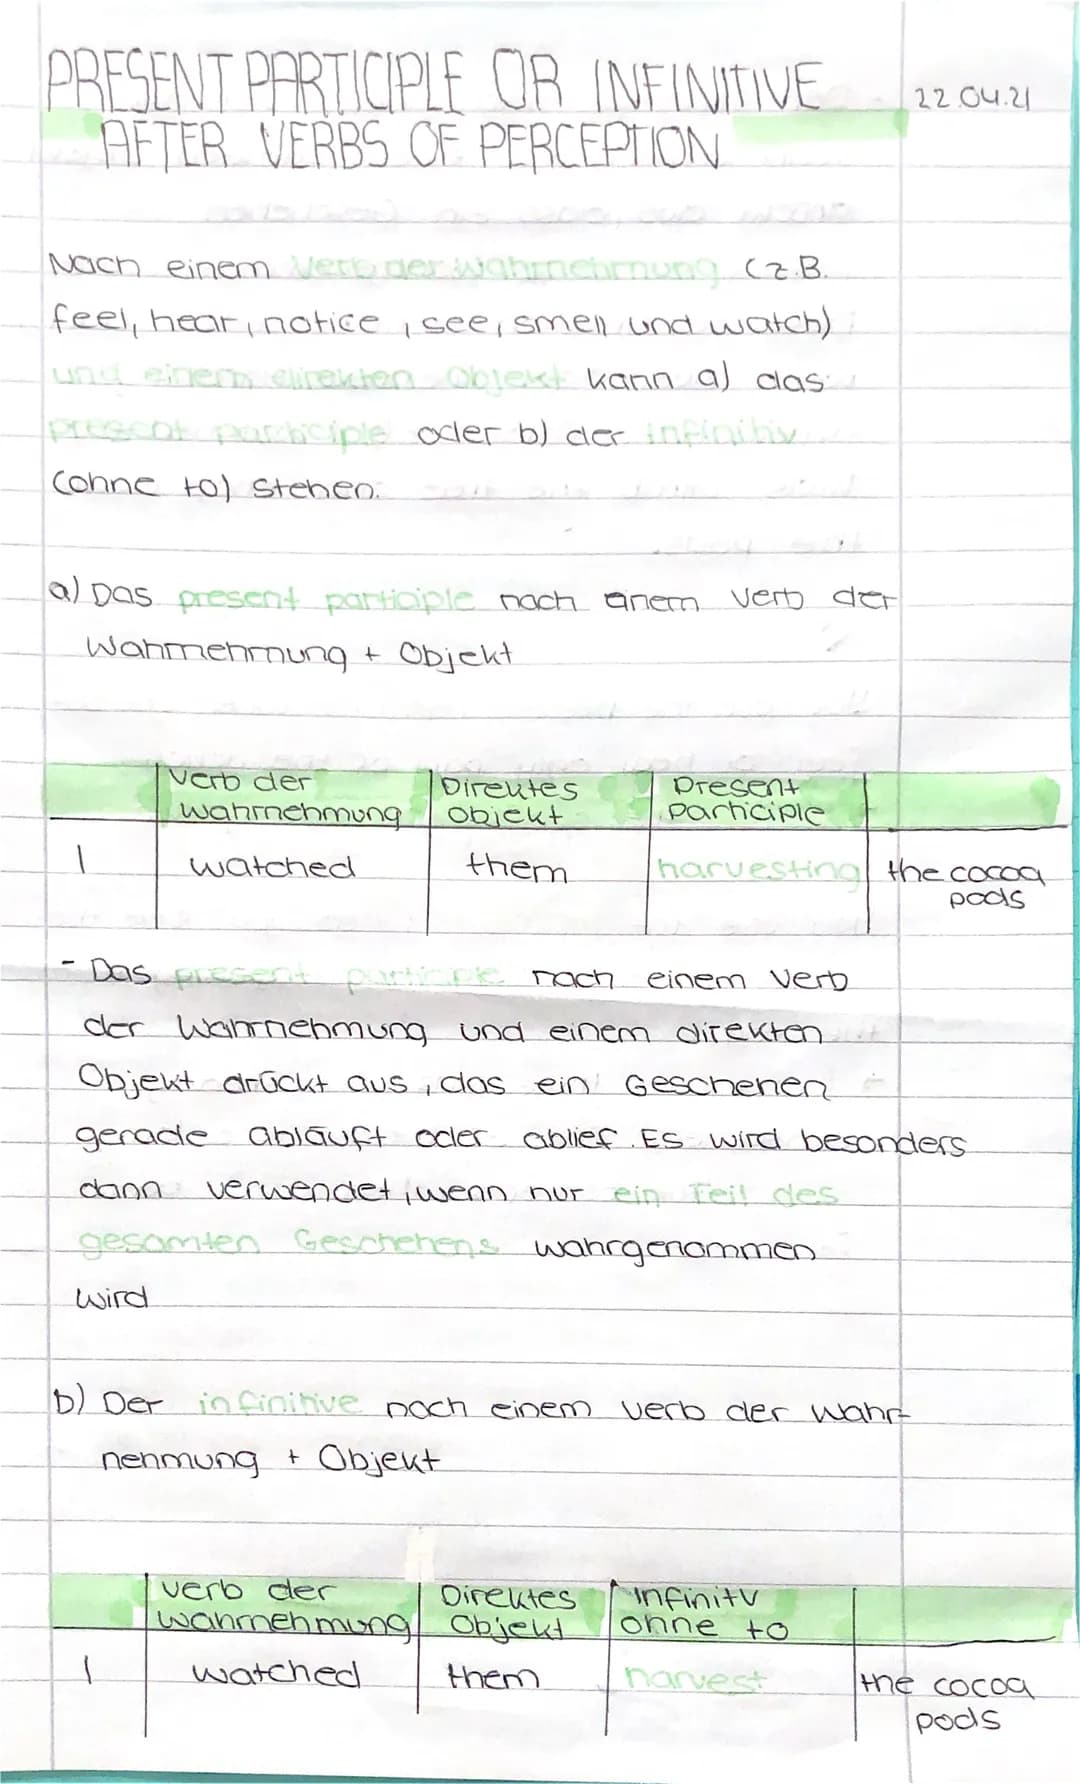 PRESENT PARTICIPLE OR INFINITIVE
22.04.21
AFTER VERBS OF PERCEPTION
Nach einem Verb der Wahrnehmung (z.B.
feel, hear, notice, see, smell und watch)
und einem direkten Objekt kann a) das
present participle oder b) der infinitiv
(ohne to) stehen.
a) Das present participle nach einem Verb der
Wahrnehmung + Objekt
Verb der Direktes Present
Wahrnehmung Objekt participle
I watched them harvesting the cocoa
pods
- Das present participle nach einem Verb
der Wahrnehmung und einem direkten
Objekt drückt aus, das ein Geschehen
gerade abläuft oder ablief. Es wird besonders
dann verwendet, wenn nur ein Teil des
gesamten Geschehens wahrgenommen
wird
b) Der infinitive nach einem Verb der Wahr-
nehmung + Objekt
Verb der Direktes Infinitv
Wahrnehmung Objekt ohne to
I watched them harvest the cocoa
pods